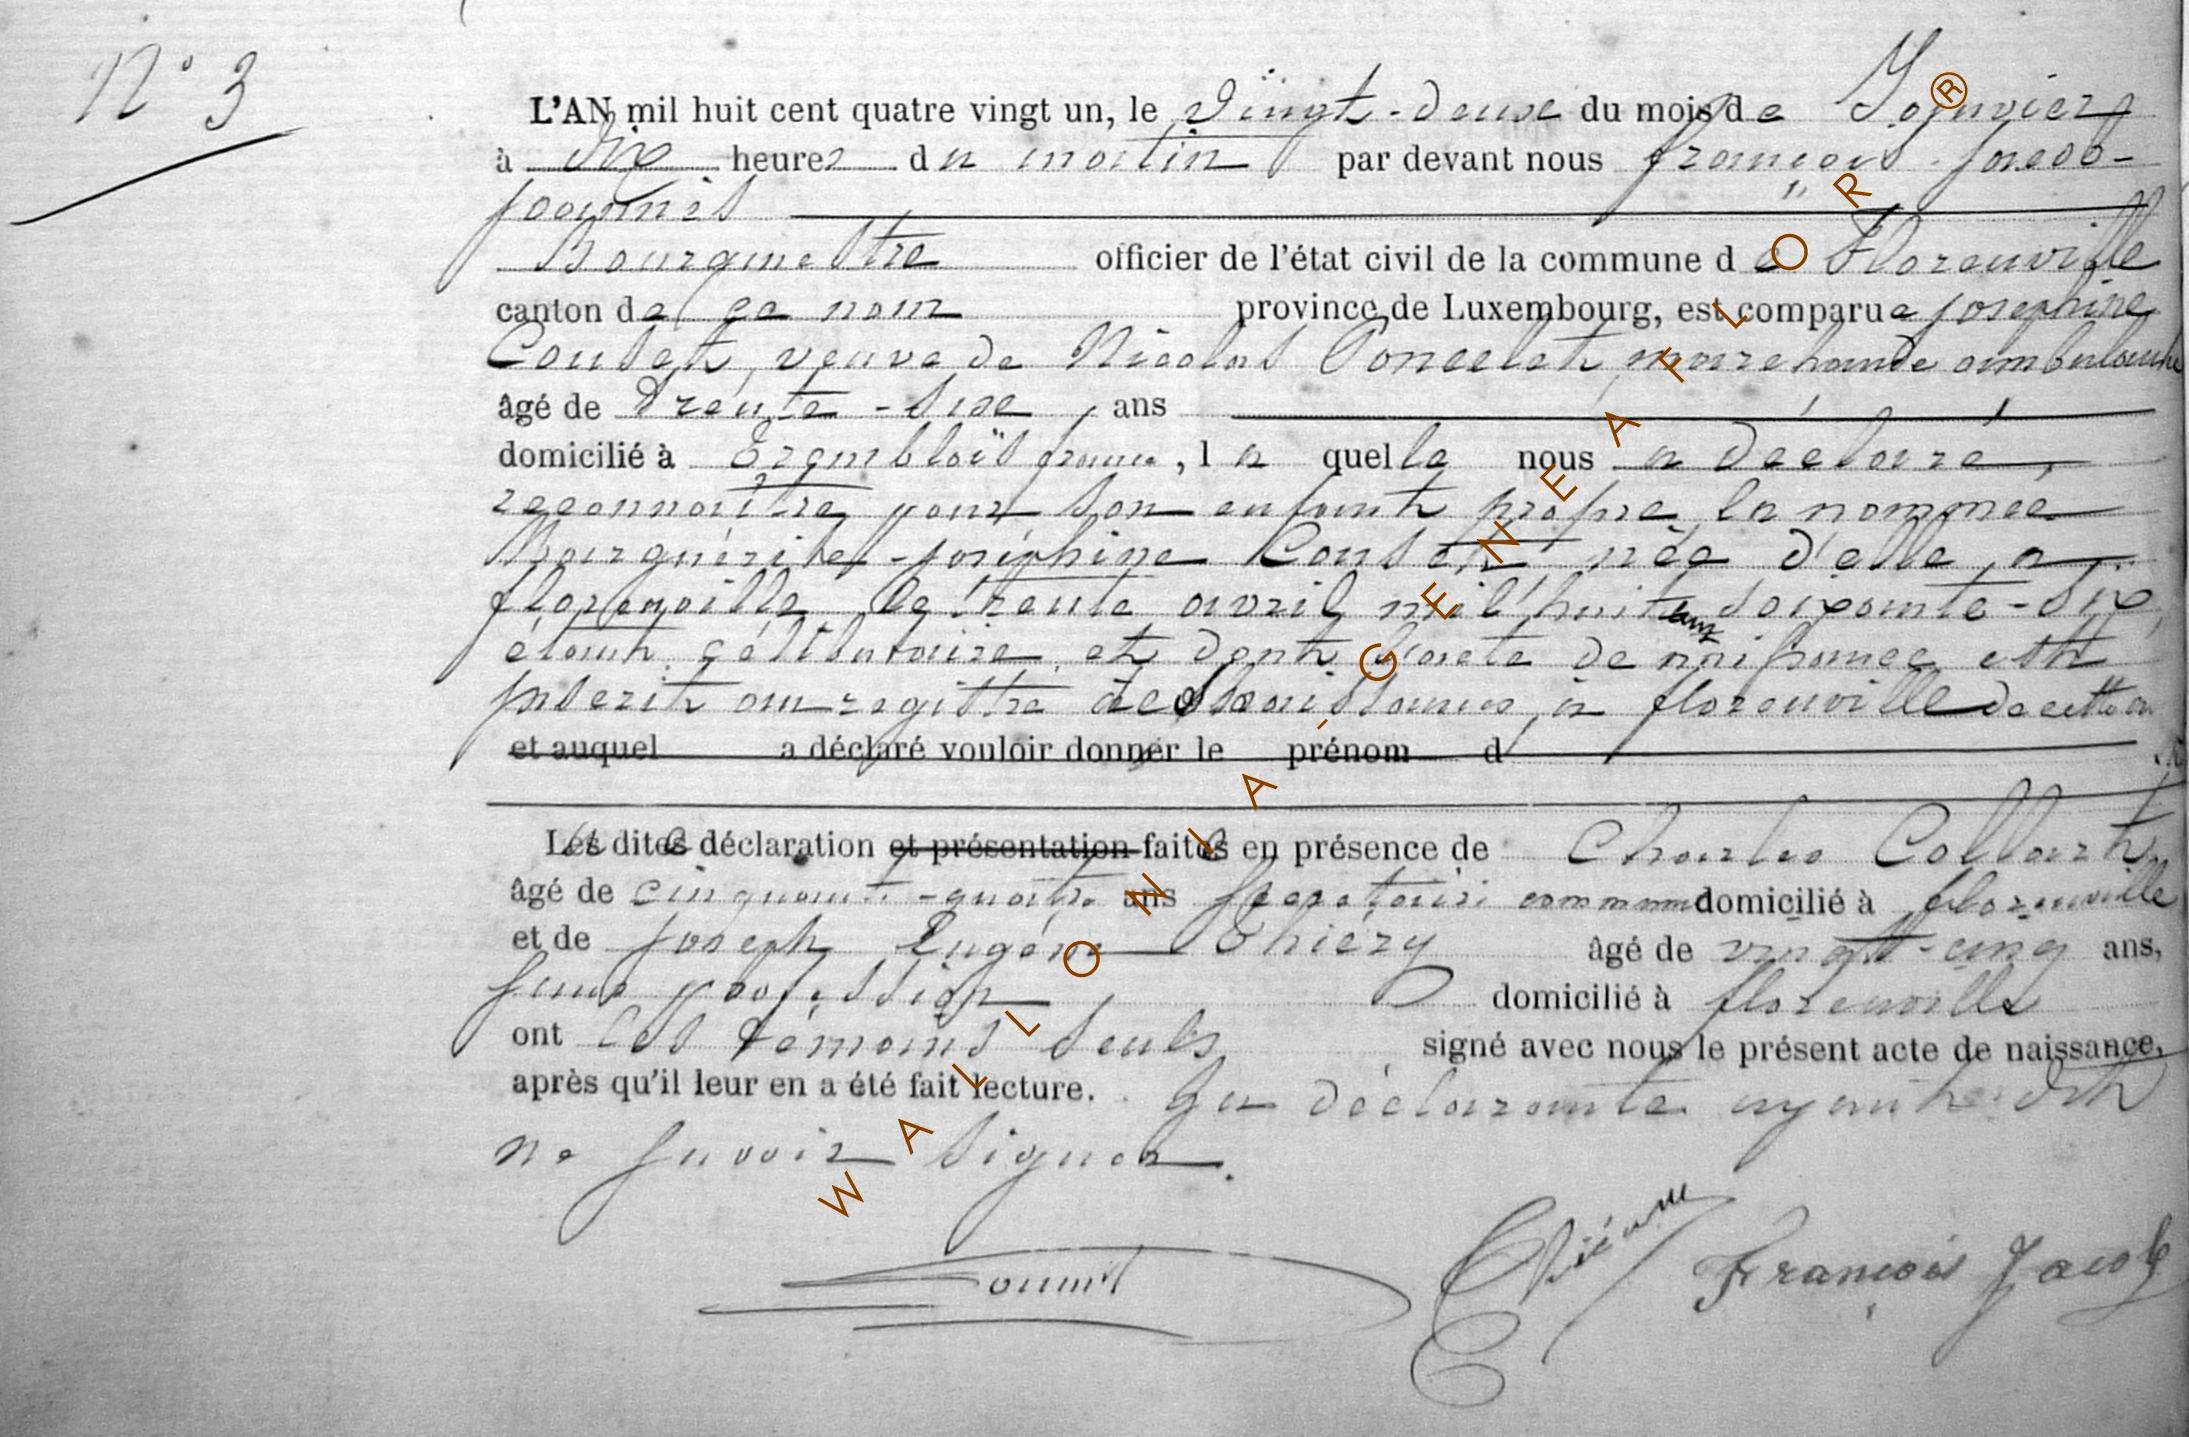 N° 3
L'AN mil huit cent quatre vingt un, le Vingt-deux du mois de Janvier
à dix heures du matin par devant nous françois-Jacob-
Joannis
Bourgmestre officier de l'état civil de la commune de Florenville
canton de ce nom province de Luxembourg, est comparue Joséphine
veuve de Nicolas Poncelet, marchande ambulante
âgé de Trente-six ans
domicilié à france, la quelle nous a déclaré,
reconnaitre pour son enfant propre la nommée
Marguérite-joséphine née d'elle a
florenville le trente avril mil huit cent soixante-dix,
étant célibataire, et dont l'acte de est
inscrit au registre des naissances, à florenville de cette
et auquel a déclaré vouloir donner le prénom d
Les dites déclaration et présentation faites en présence de Charles Collart
âgé de cinquante-quatre ans secretaire communal domicilié à florenville
et de Joseph Eugène Thiéry âgé de vingt-cinq ans,
sans profession domicilié à florenville
ont les témoins seuls signé avec nous le présent acte de naissance,
après qu'il leur en a été fait lecture. La déclarante ayant dit
ne savoir signer.
François Jacob
WALLONIA GENEAFLOR ®